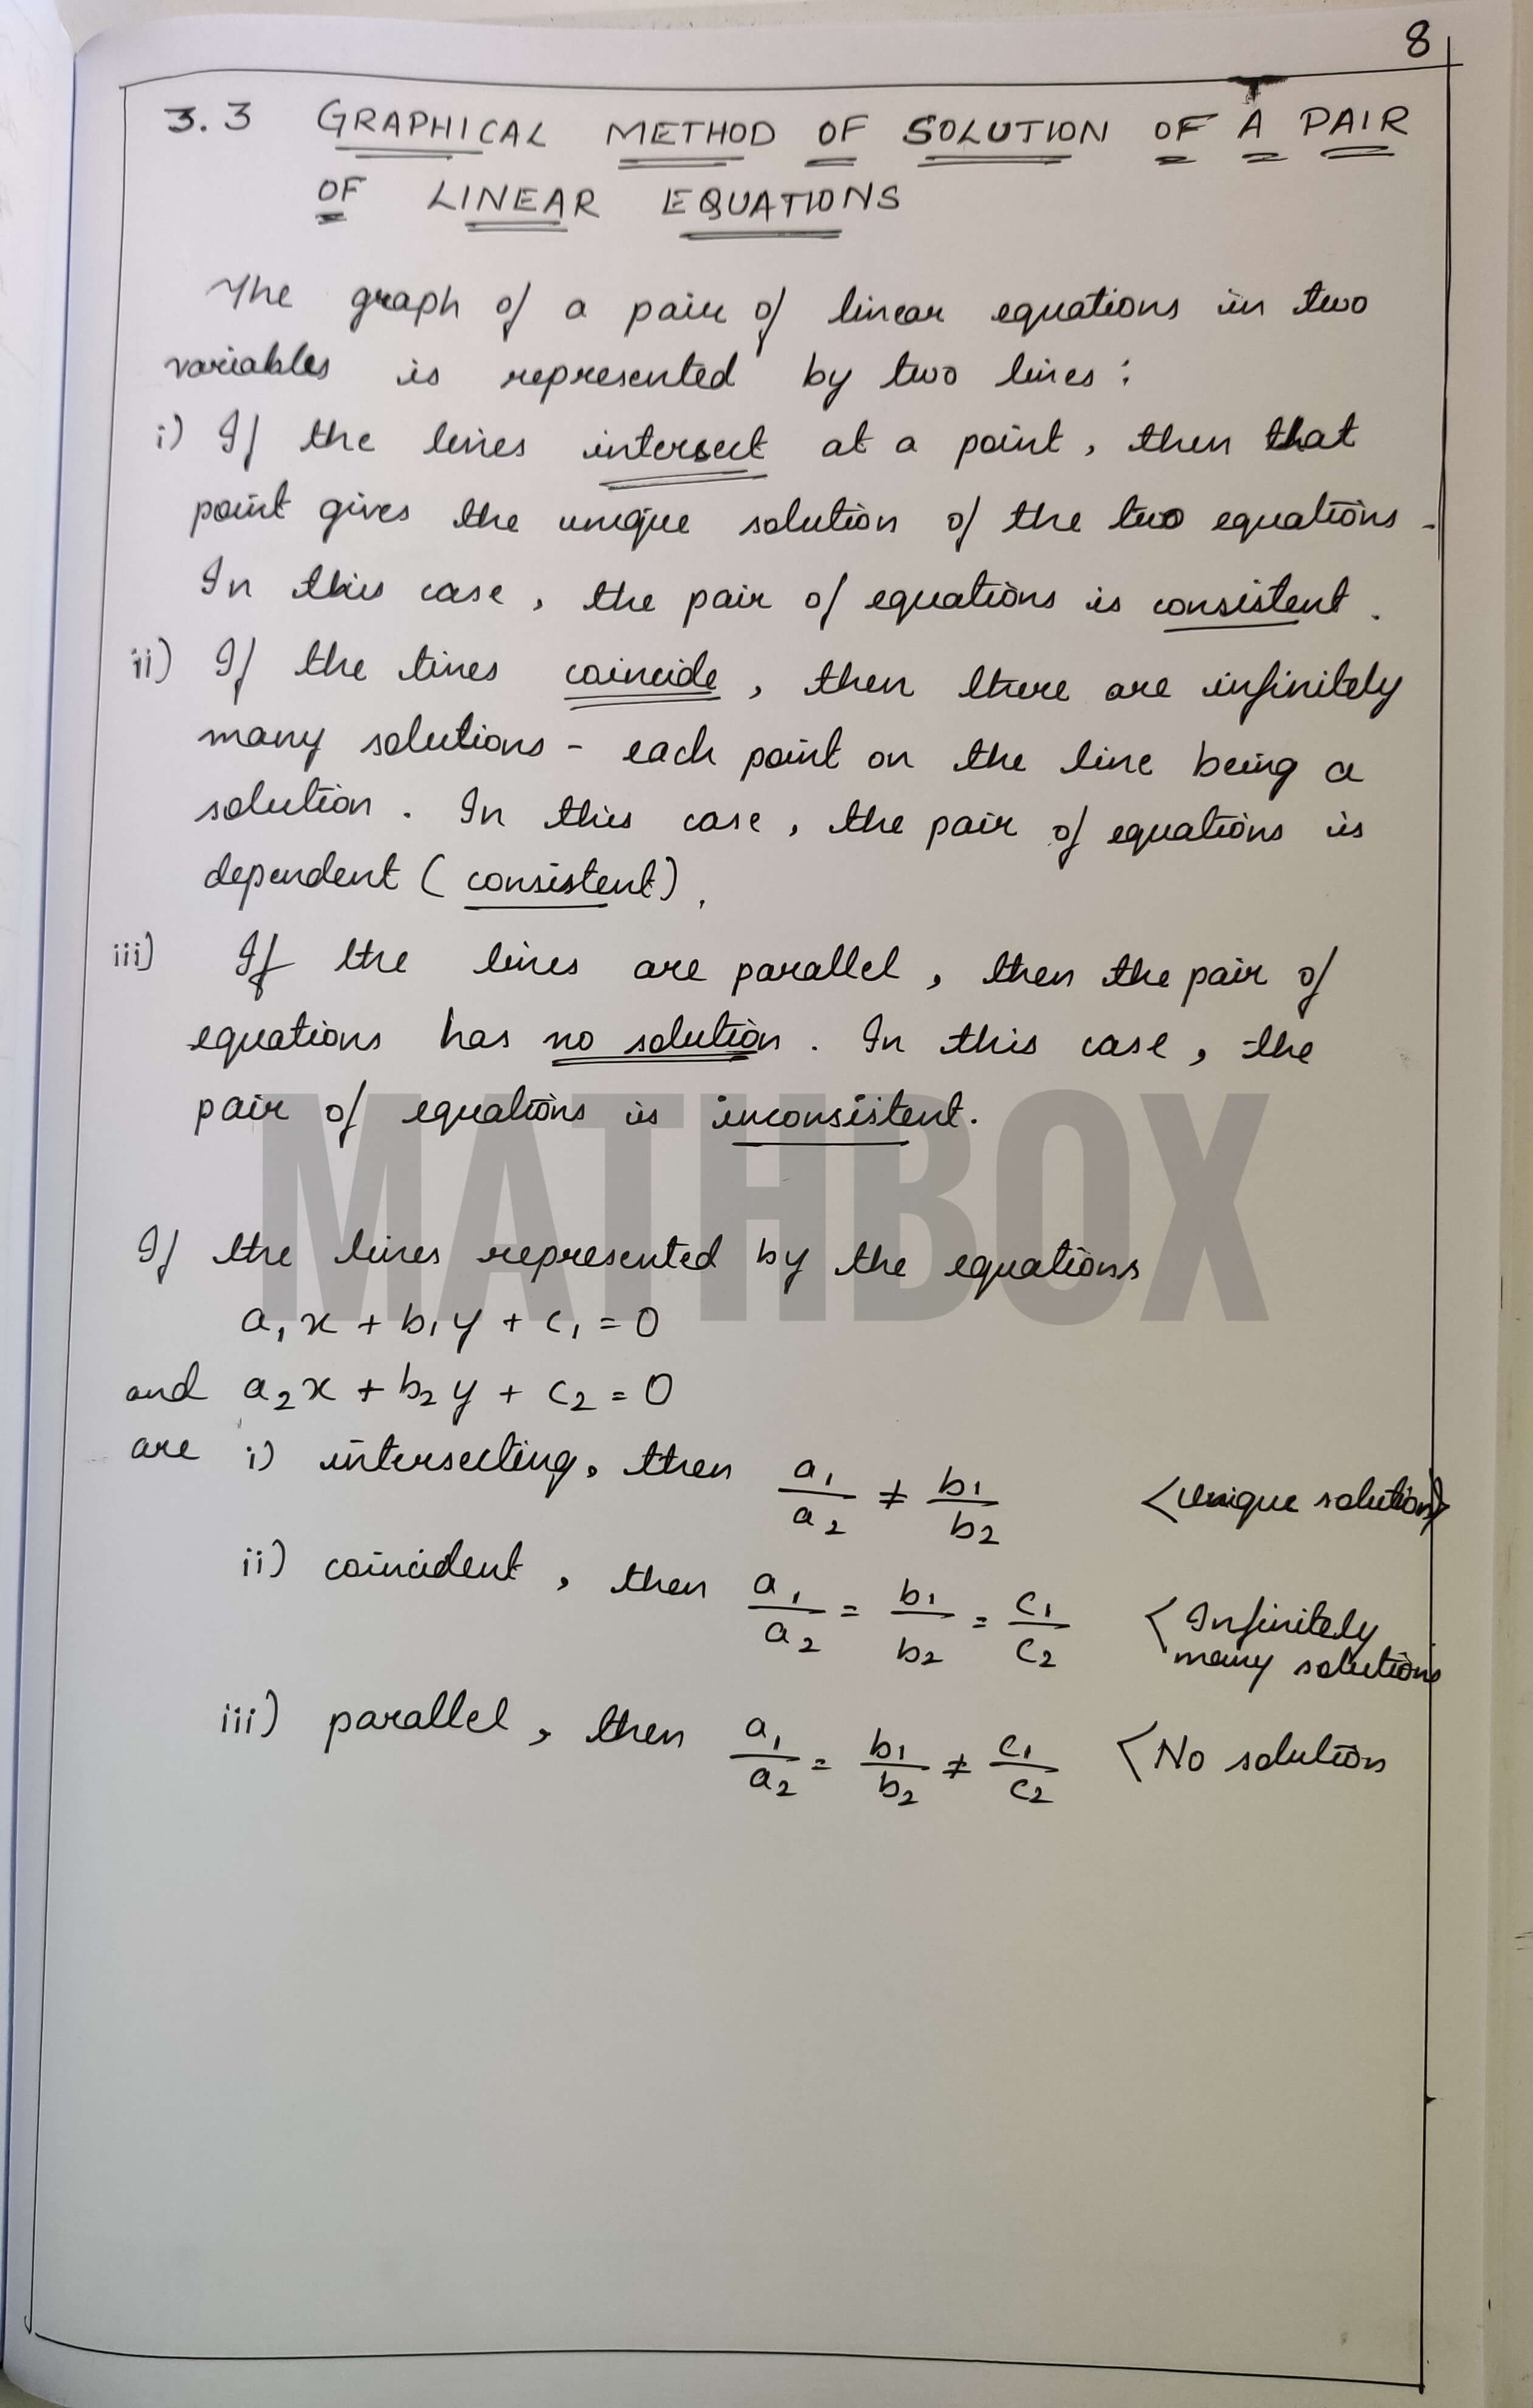 8
3.3 GRAPHICAL METHOD OF SOLUTION OF A PAIR
OF LINEAR EQUATIONS
The graph of a pair of linear equations in two
variables is represented by two lines :
i) If the lines intersect at a point, then that
point gives the unique solution of the two equations.
In this case, the pair of equations is consistent.
ii) If the lines coincide, then there are infinitely
many solutions - each point on the line being a
solution. In this case, the pair of equations is
dependent (consistent).
iii) If the lines are parallel, then the pair of
equations has no solution. In this case, the
pair of equations is inconsistent.
MATHBOX
If the lines represented by the equations
a₁x + b₁y + c₁ = 0
and a₂x + b₂y + c₂ = 0
are i) intersecting, then a₁/a₂ ≠ b₁/b₂ <Unique solution>
ii) coincident, then a₁/a₂ = b₁/b₂ = c₁/c₂ <Infinitely
many solutions
iii) parallel, then a₁/a₂ = b₁/b₂ ≠ c₁/c₂ <No solution